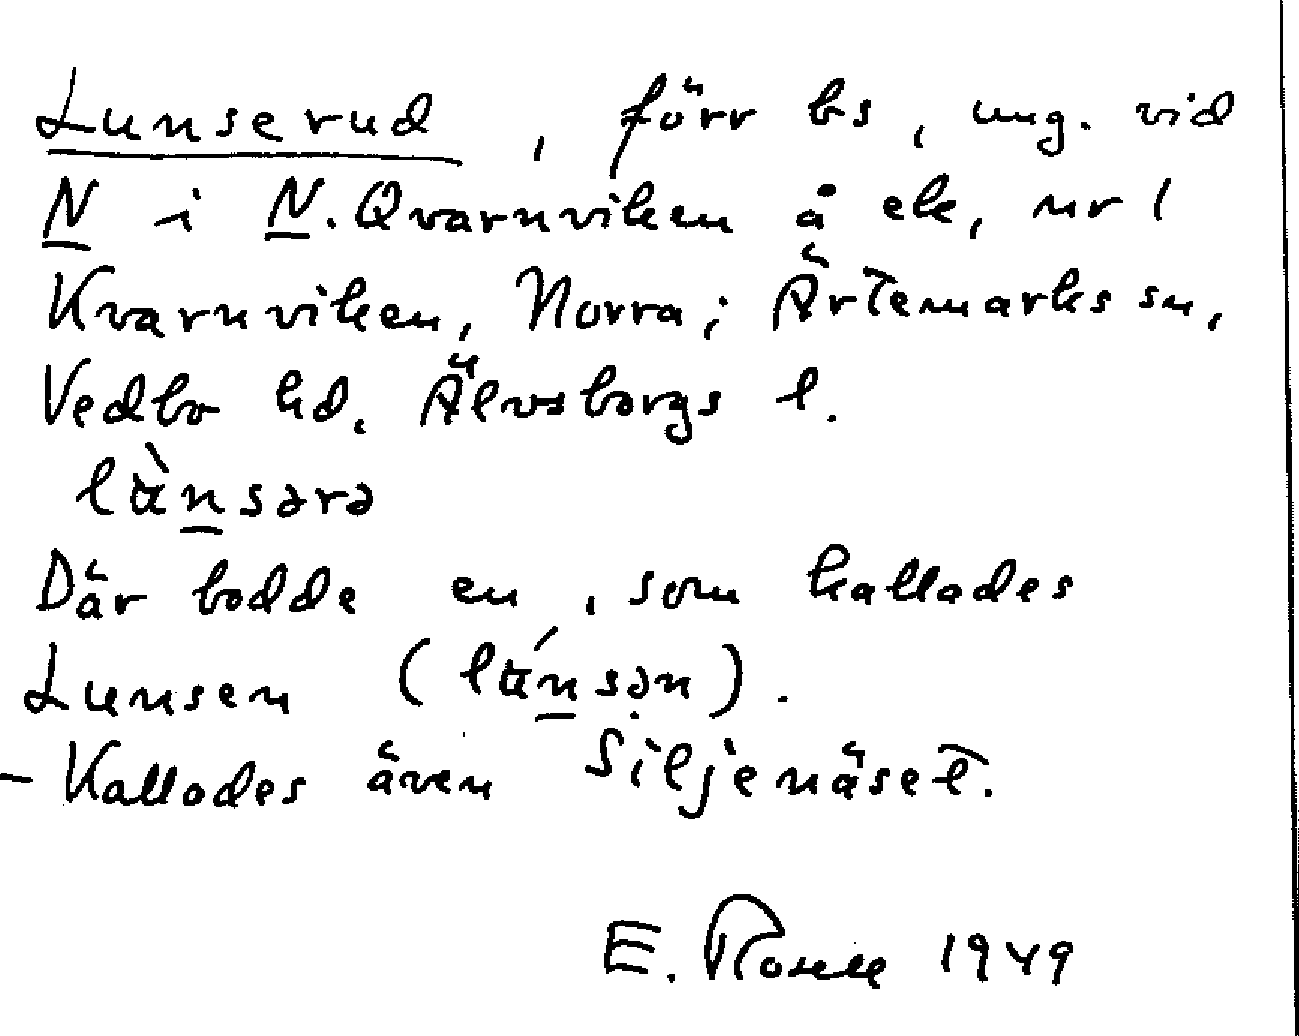 Lunserud, förr bs, ung. vid
N i N. Qvarnviken å ek, nr 1
Kvarnviken, Norra; Ärtemarks sn,
Vedbo hd. Älvsborgs l.
lɯ̀nsərə
Där bodde en, som kallades
Lunsen (lɯ́nsən).
- Kallades även Siljenäset.
E. 1949